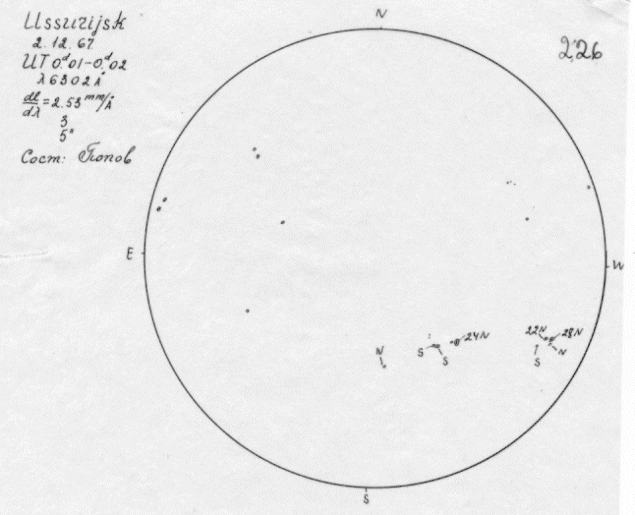 Ussurijsk
2.12.67
UT 0ᵈ01-0ᵈ02
λ6302Å
dl/dλ = 2.53 mm/Å
3
5"
Сост: Попов
N
226
E
W
24N
S
S
N
22N
28N
N
S
S